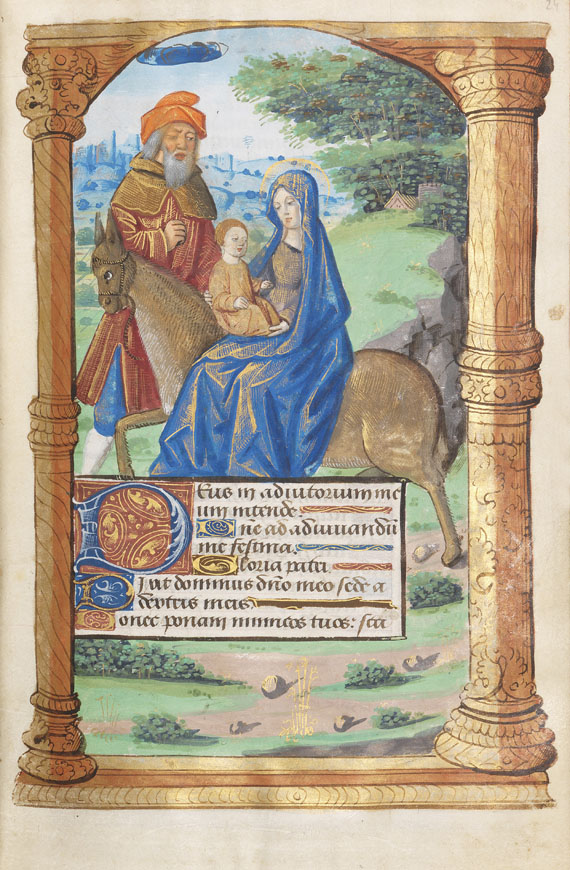 Deus in adiutorium me
um intende
Dn̄e ad adiuuandū
me festina.
Gloria patri.
Dixit dominus dn̄o meo sede a
dextris meis.
Donec ponam inimicos tuos: sca